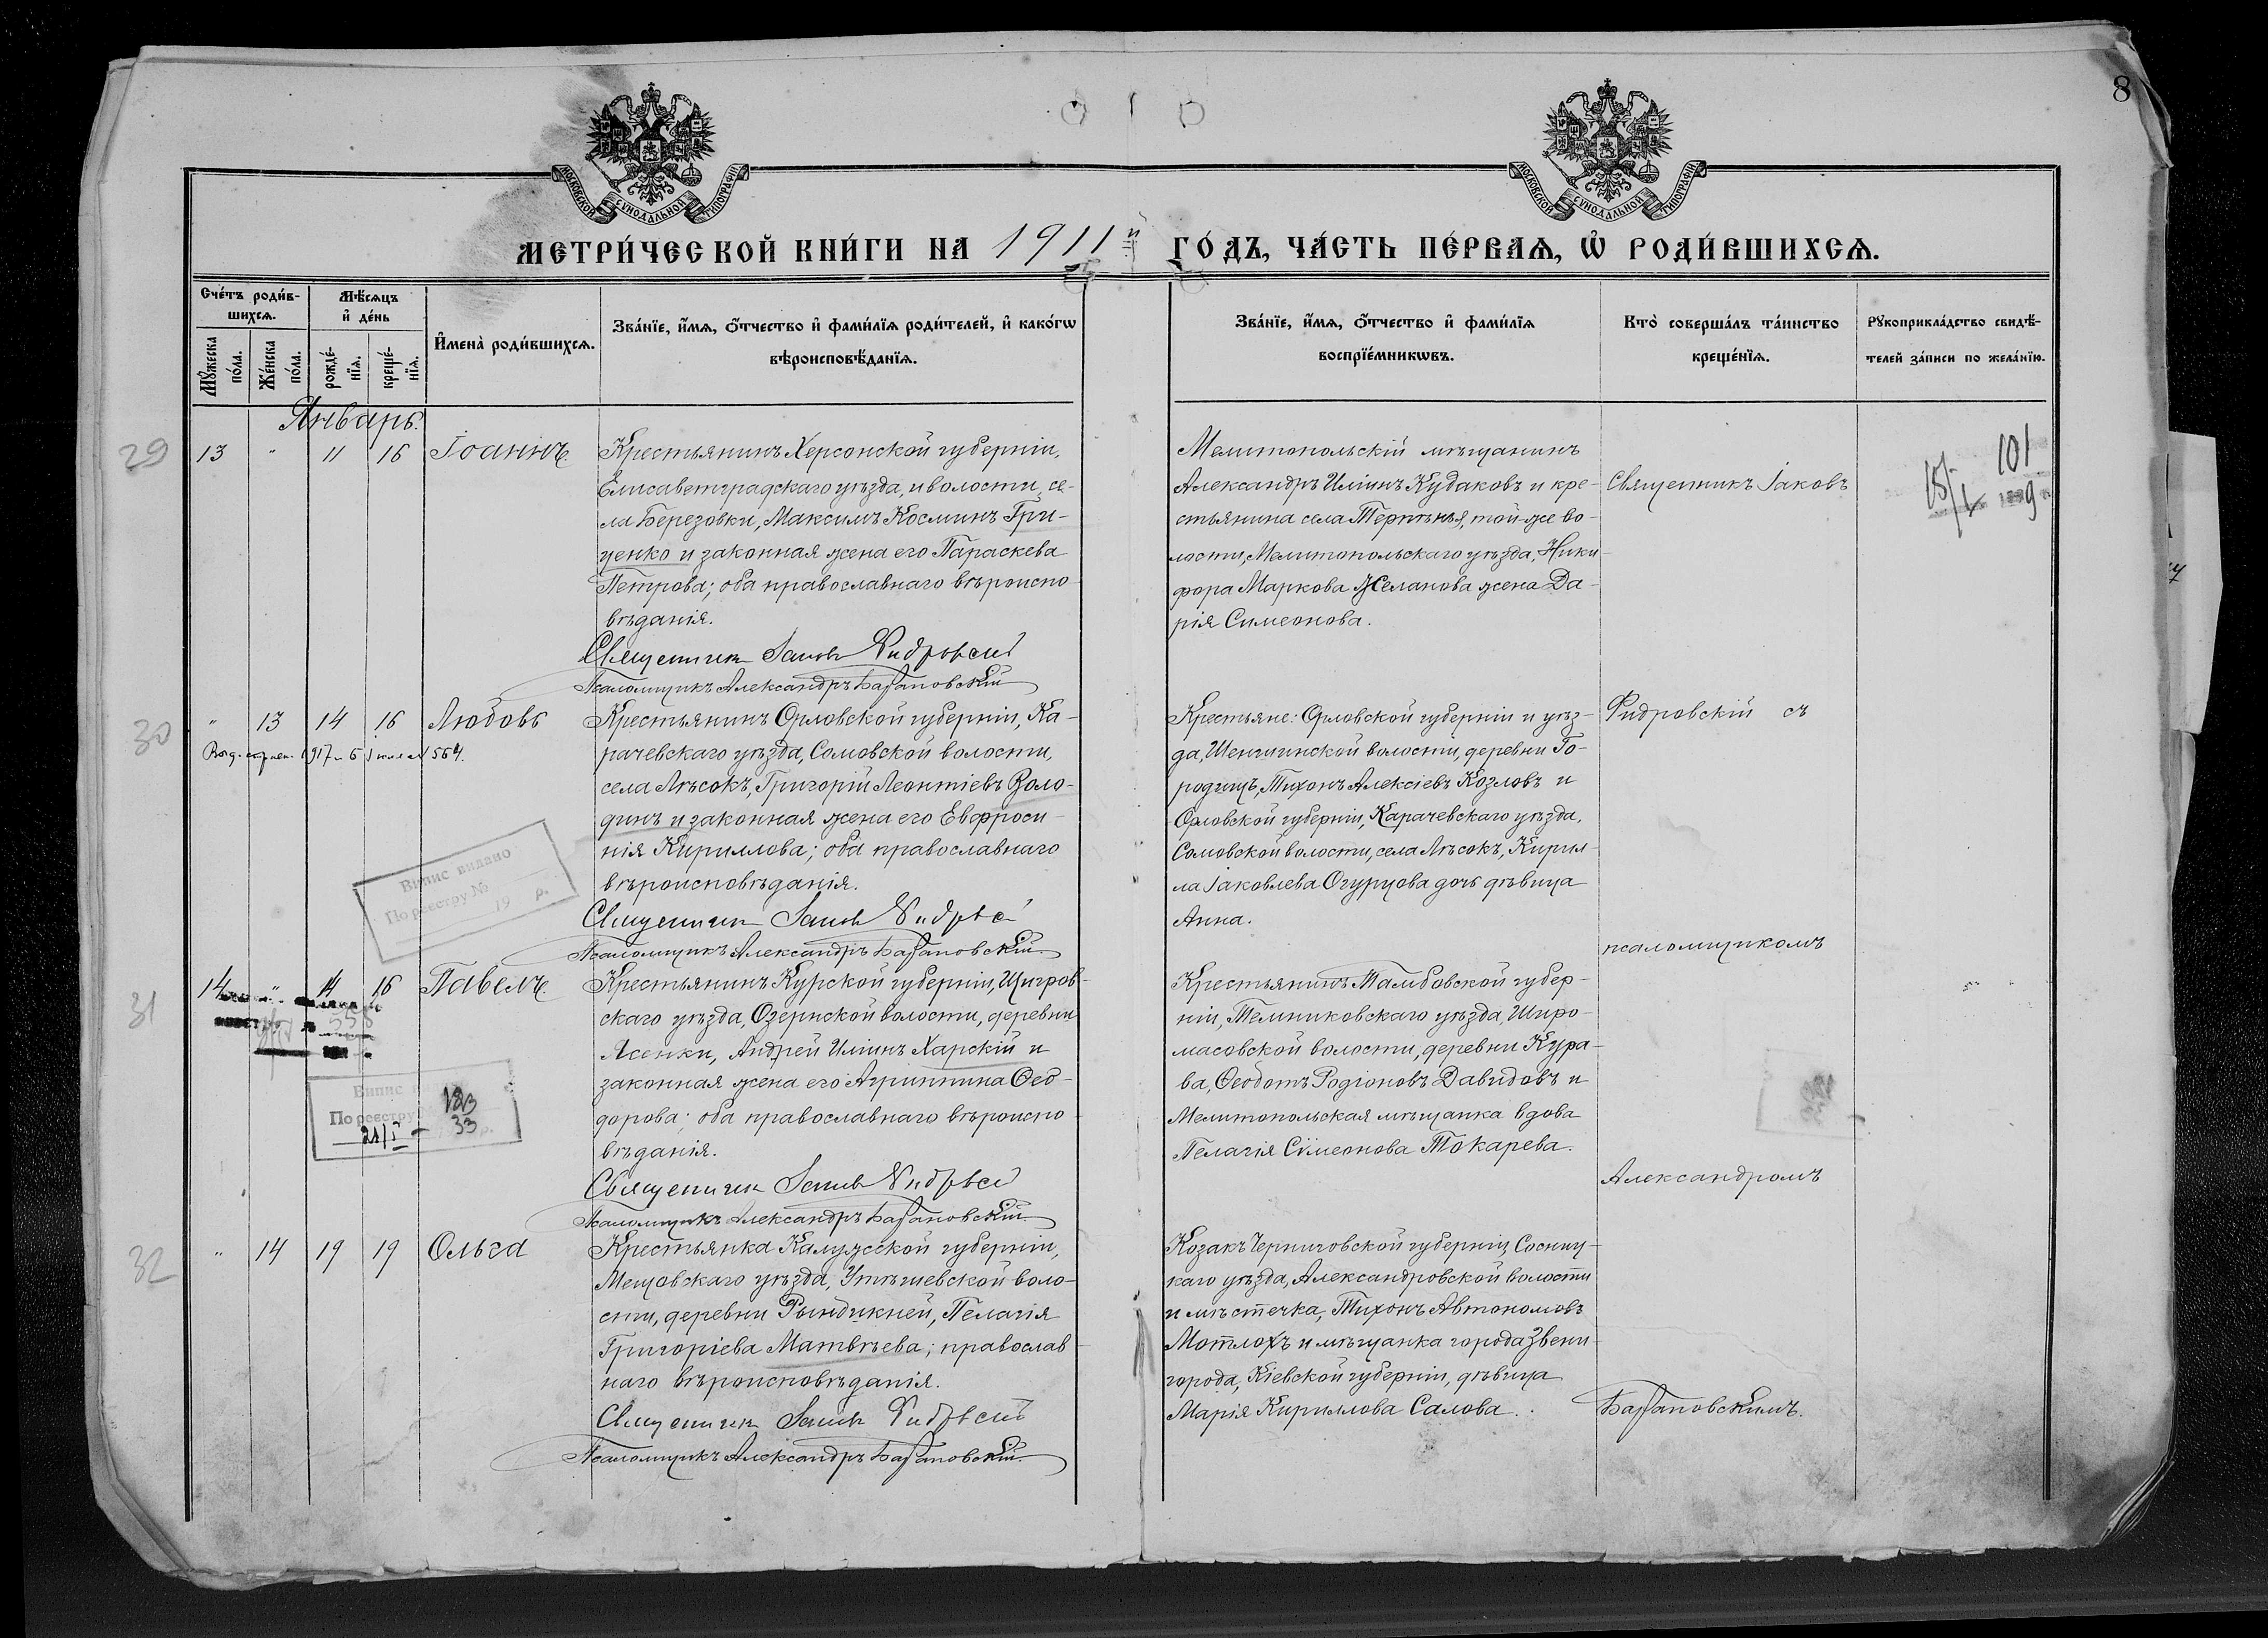 8
МОСКОВСКОЙ СѴНОДАЛЬНОЙ ТИПОГРАФІИ
МОСКОВСКОЙ СѴНОДАЛЬНОЙ ТИПОГРАФІИ
МЕТРИ́ЧЕСКОЙ КНИ́ГИ НА 1911й ГО́ДЪ, ЧА́СТЬ ПЕ́РВАѦ, Ѡ҆ РОДИ́ВШИХСѦ.
Сче́тъ роди́в-
шихсѧ.
Мꙋ́жеска
по́ла.
Же́нска
по́ла.
Мѣ́сѧцъ
и҆ де́нь
рожде́-
нїѧ.
креще́-
нїѧ.
И҆мена̀ роди́вшихсѧ.
Зва́нїе, и҆́мѧ, ѻ҆́тчество и҆ фами́лїѧ роди́телей, и҆ како́гѡ
вѣроисповѣ́данїѧ.
Зва́нїе, и҆́мѧ, ѻ҆́тчество и҆ фами́лїѧ
воспрїе́мникѡвъ.
Кто̀ соверша́лъ та́инство
креще́нїѧ.
Рꙋкоприкла́дство свидѣ́-
телей за́писи по жела́нїю.
Январь.
29
13 " 11 16 Іоаннъ.
Крестьянинъ Херсонской губерніи,
Елисаветградскаго уѣзда, и волости, се-
ла Березовки, Максимъ Косминъ Гри-
ценко и законная жена его Параскева
Петрова; оба православнаго вѣроиспо-
вѣданія.
Священникъ Іаковъ Фидровскій
Псаломщикъ Александръ Базановскій
Мелитопольскій мѣщанинъ
Александръ Иліинъ Кудаковъ и кре-
стьянина села Терпѣнья, той-же во-
лости, Мелитопольскаго уѣзда, Ники-
фора Маркова Желанова жена Да-
рія Симеонова.
Священникъ Іаковъ
101
15/I 9
30
" 13 14 16 Любовь
1917 5 564.
Крестьянинъ Орловской губерніи, Ка-
рачевскаго уѣзда, Сомовской волости,
села Лѣсокъ, Григорій Леонтіевъ Воло-
динъ и законная жена его Евфроси-
нія Кириллова; оба православнаго
вѣроисповѣданія.
Священникъ Іаковъ Фидровскій
Псаломщикъ Александръ Базановскій.
Крестьяне: Орловской губерніи и уѣз-
да, Шенгинской волости, деревни Го-
родищъ, Тихонъ Алексіевъ Козловъ и
Орловской губерніи, Карачевскаго уѣзда,
Сомовской волости, села Лѣсокъ, Кирил-
ла Іаковлева Огурцова дочь дѣвица
Анна.
Фидровскій съ
псаломщикомъ
Випис видано
По реестру №
19 р.
31
14 " 14 16 Павелъ
Крестьянинъ Курской губерніи, Щигров-
скаго уѣзда, Озерской волости, деревни
Ясенки, Андрей Иліинъ Харскій и
законная жена его Агриппина Ѳео-
дорова; оба православнаго вѣроиспо-
вѣданія.
Священникъ Іаковъ Фидровскій
Псаломщикъ Александръ Базановскій.
Крестьянинъ Тамбовской губер-
ніи, Темниковскаго уѣзда, Широ-
масовской волости, деревни Кура-
ва, Ѳеодотъ Родіоновъ Давидовъ и
Мелитопольская мѣщанка вдова
Пелагія Сѵмеонова Токарева.
Александромъ
Випис
По реестру 183
21/I - 33 р.
32
" 14 19 19 Ольга
Крестьянка Калужской губерніи,
Мещовскаго уѣзда, Утѣшевской воло-
сти, деревни Рындикней, Пелагія
Григоріева Матвѣева; православ-
наго вѣроисповѣданія.
Священникъ Іаковъ Фидровскій
Псаломщикъ Александръ Базановскій.
Козакъ Черниговской губерніи, Сосниц-
каго уѣзда, Александровской волости
и мѣстечка, Тихонъ Автономовъ
Мотлохъ и мѣщанка города Звени-
города, Кіевской губерніи, дѣвица
Марія Кириллова Салова.
Базановскимъ.